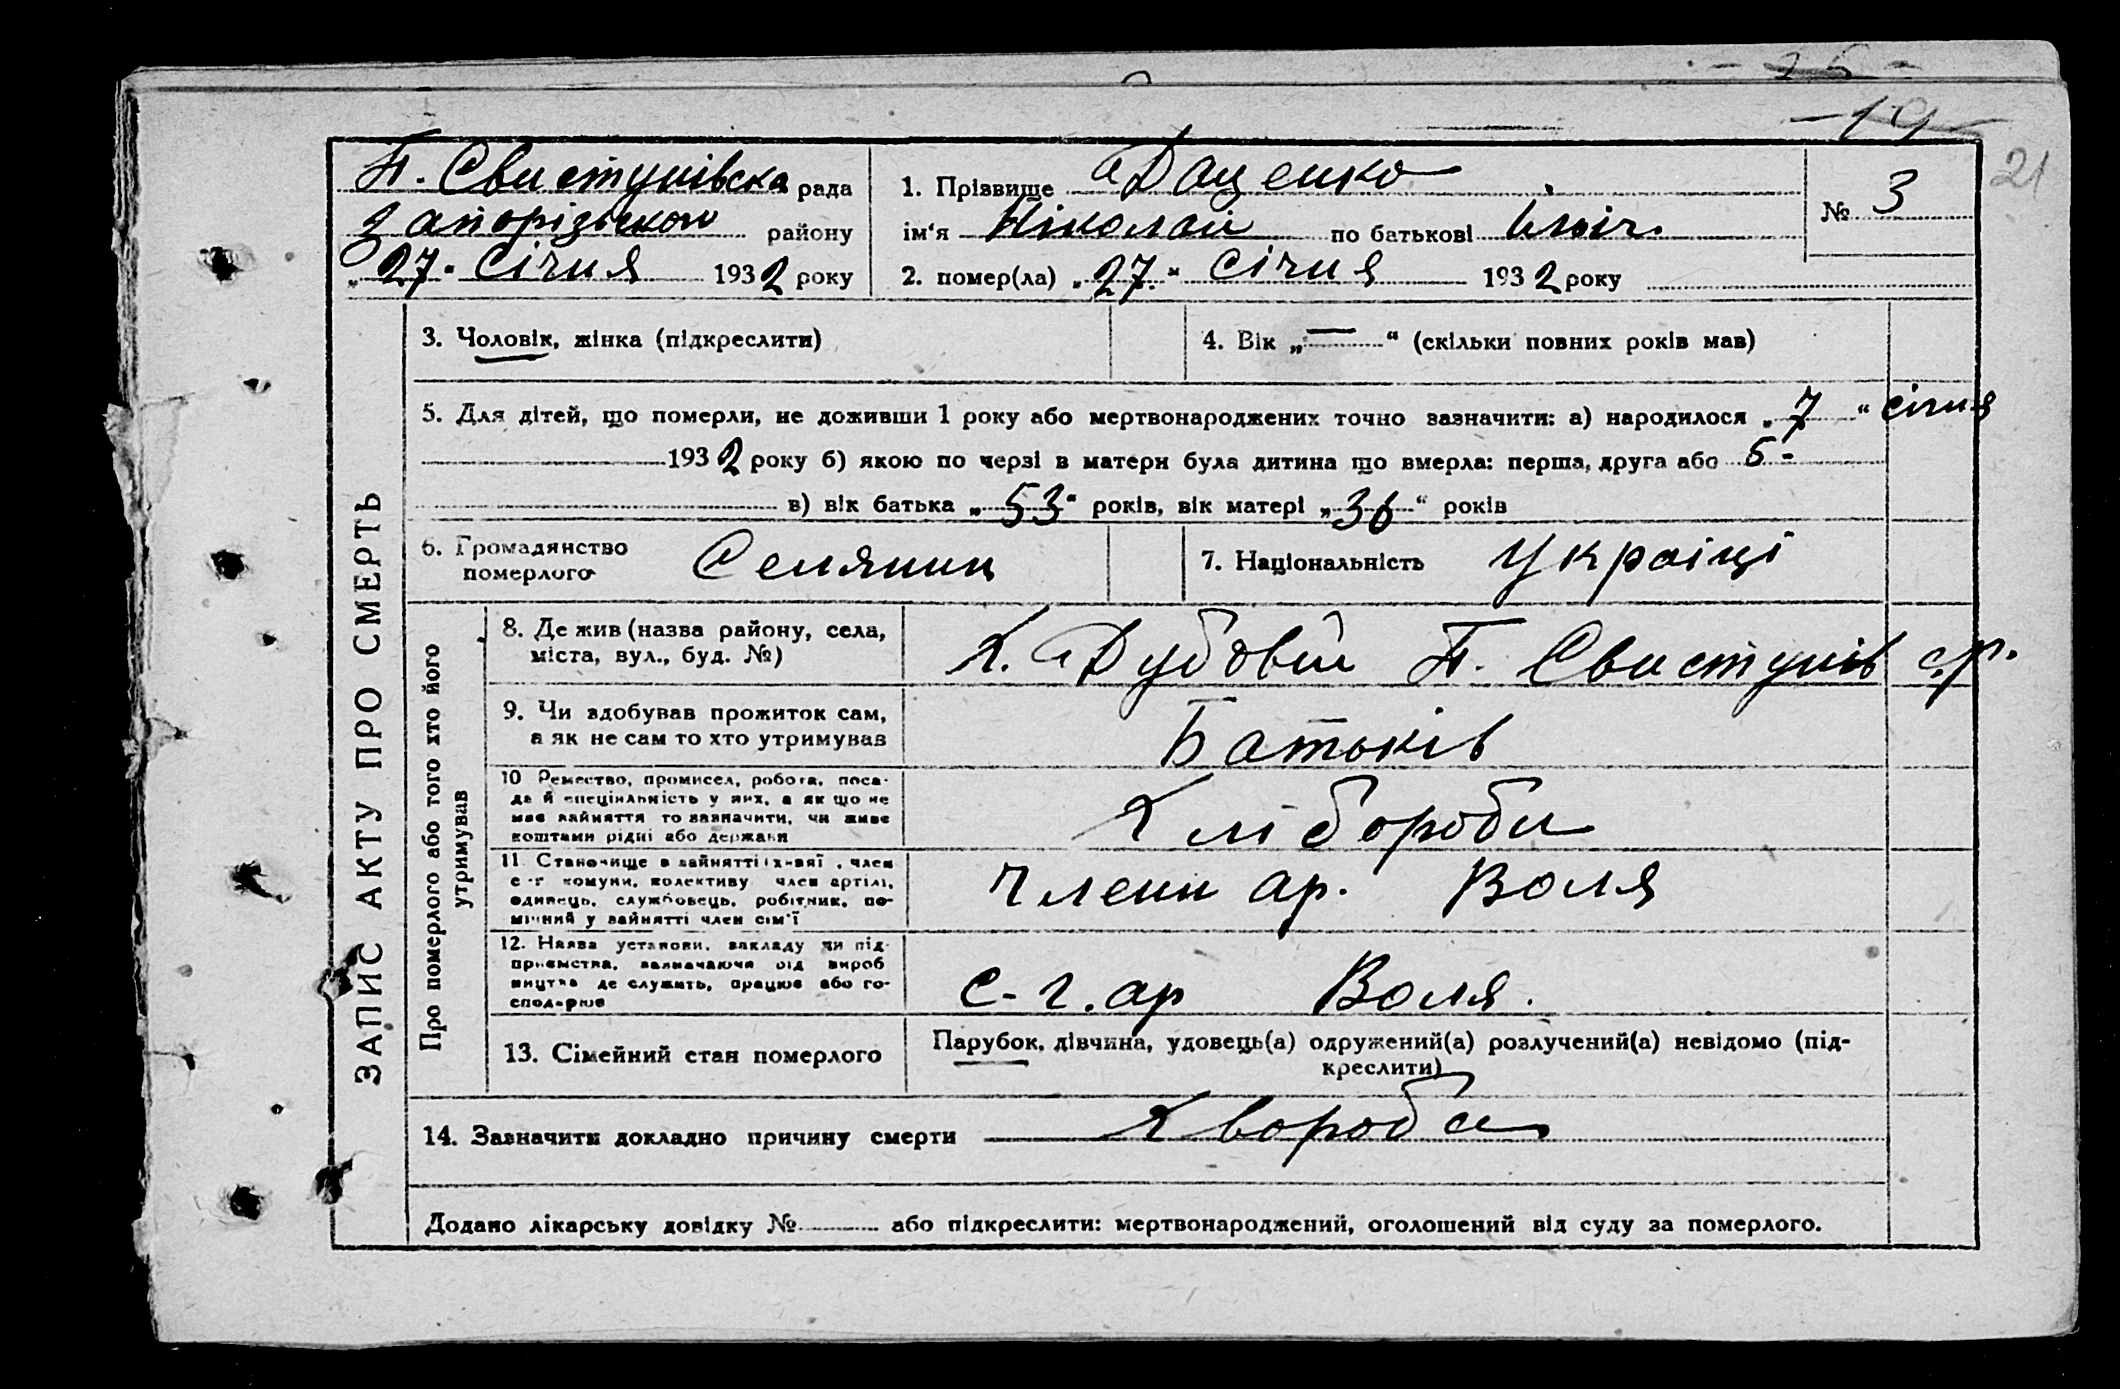 - 25 -
- 19 -
21
П. Свистунівська рада
Запорізьком району
„ 27 " Січня 1932 року
1. Прізвище Даценко
ім‘я Ніколай по батькові Ілліч.
2. помер(ла) „ 27 " Січня 1932 року
№ 3
ЗАПИС АКТУ ПРО СМЕРТЬ
3. Чоловік, жінка (підкреслити)
4. Вік „ — “ (скільки повних років мав)
5. Для дітей, що померли, не доживши 1 року або мертвонароджених точно зазначити: а) народилося „ 7 “ січня
1932 року б) якою по черзі в матери була дитина що вмерла: перша, друга або 5 -
в) вік батька „ 53 " років, вік матері „ 36 “ років
6. Громадянство
померлого Селянин
7. Національність Україці
Про померлого або того хто його
утримував
8. Де жив (назва району, села,
міста, вул., буд. №)
Х. Дубовий П. Свистунів с.р.
9. Чи здобував прожиток сам,
а як не сам то хто утримував
Батьків
10 Ремество, промисел, робота, поса-
да й спеціяльність у них, а як що не
має зайняття то зазначити, чи живе
коштами рідні або держави
Хлібороби
11. Становище в зайнятті: хазяї, член
с-г комуни, колективу член артілі,
одинець, службовець, робітник, по-
мічний у зайнятті член сім‘ї
Члени ар. Воля
12. Назва установи, закладу чи під-
приємства, зазначаючи від вироб
ництва де служить, працює або го-
сподарює
С-г. ар Воля.
13. Сімейний стан померлого
Парубок, дівчина, удовець(а) одружений(а) розлучений(а) невідомо (під-
креслити)
14. Зазначити докладно причину смерти Хвороба
Додано лікарську довідку № або підкреслити: мертвонароджений, оголошений від суду за померлого.